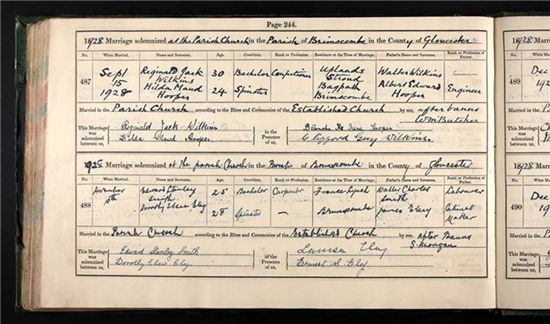 Page 244.
1928 Marriage solemnized at the Parish Church in the Parish of Brimscombe in the County of Gloucester
No. When Married. Name and Surname. Age. Condition. Rank or Profession. Residence at the Time of Marriage. Father's Name and Surname. Rank or Profession of Father.
487 Sept 15 1928 Reginald Jack Wilkins 30 Bachelor Uplands Stroud Walter Wilkins
Hilda Maud Hooper 24 Spinster Bagpath Brimscombe Albert Edward Hooper Engineer
Married in the Parish Church according to the Rites and Ceremonies of the Established Church by me, after banns
This Marriage was solemnized between us, Reginald Jack Wilkins in the Presence of us, Hooper
Hilda Maud Hooper Clifford Guy Wilkins.
1928. Marriage solemnized at the parish Church in the Parish of Brimscombe in the County of Gloucester
No. When Married. Name and Surname. Age. Condition. Rank or Profession. Residence at the Time of Marriage. Father's Name and Surname. Rank or Profession of Father.
488 Edward Stanley Smith 25 Bachelor Carpenter France Lynch Walter Charles Smith Labourer
Dorothy Elsie Clay 25 Spinster — Brimscombe James Clay Cabinet Maker
Married in the Parish Church according to the Rites and Ceremonies of the Established Church by me, after Banns
This Marriage was solemnized between us, Edward Stanley Smith in the Presence of us, Clay
Dorothy Elsie Clay Ernest S. Clay
1928
No.
489 Dec
490 Dec